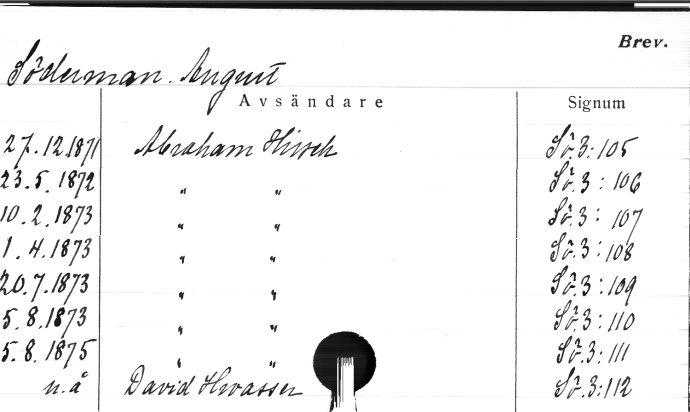 Brev.
Söderman. August
Avsändare Signum
27.12.1871 Abraham Hirsch Sö.3:105
23.5.1872 " " Sö.3:106
10.2.1873 " " Sö.3:107
1.4.1873 " " Sö.3:108
20.7.1873 " " Sö.3:109
5.8.1873 " " Sö.3:110
5.8.1875 " " Sö.3:111
u.å David Hwasser Sö.3:112